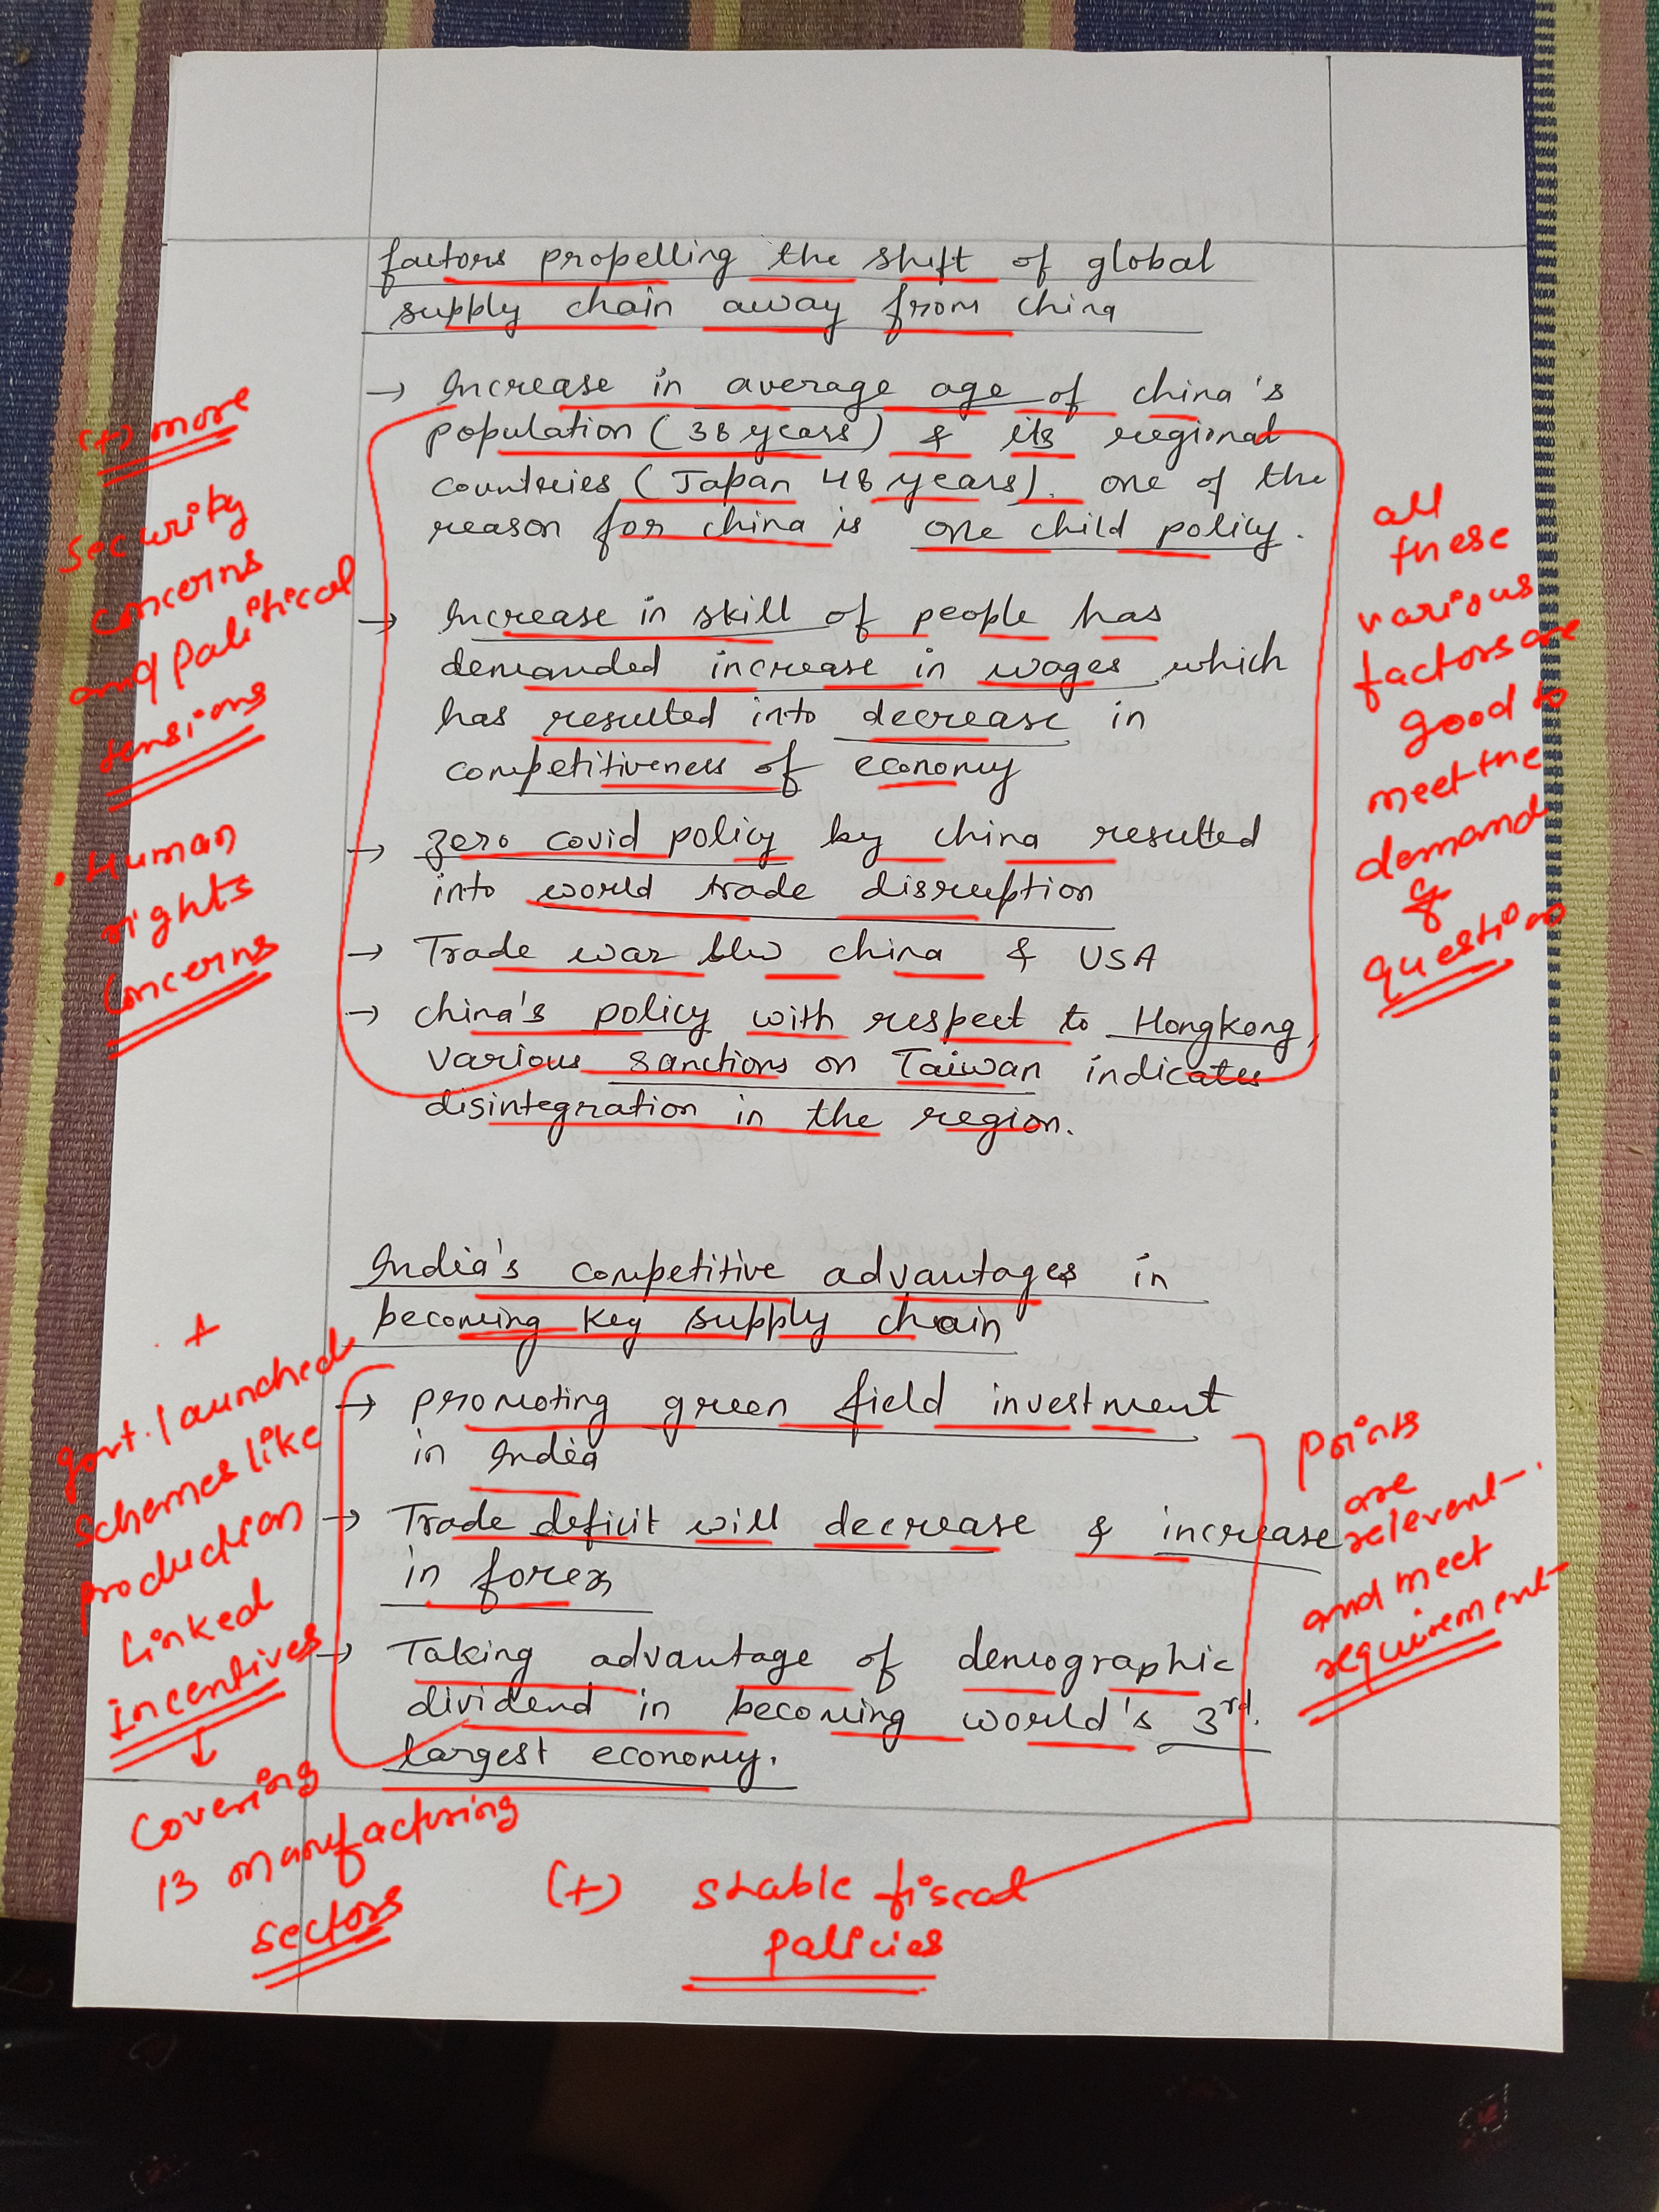 factors propelling the shift of global
supply chain away from china
→ Increase in average age of china's
population (38 years) & its regional
countries (Japan 48 years). one of the
reason for china is one child policy.
→ Increase in skill of people has
demanded increase in wages which
has resulted into decrease in
competitiveness of economy
→ zero covid policy by china resulted
into world trade disruption
→ Trade war b/w china & USA
→ china's policy with respect to Hongkong,
various sanctions on Taiwan indicates
disintegration in the region.
(+) more
security
concerns
and political
tensions
• Human
rights
concerns
all
these
various
factors are
good to
meet the
demand
of
question
India's competitive advantages in
becoming key supply chain
→ promoting green field investment
in India
→ Trade deficit will decrease & increase
in forex
→ Taking advantage of demographic
dividend in becoming world's 3rd
largest economy.
+
govt. launched
schemes like
production
linked
incentives
↓
covering
13 manufacturing
sectors
points
are
relevent
and meet
requirement
(+) stable fiscal
policies